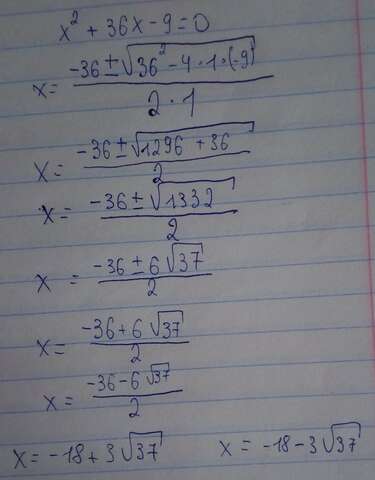 x² + 36x - 9 = 0
x = (-36 ± √(36² - 4 · 1 · (-9))) / (2 · 1)
x = (-36 ± √(1296 + 36)) / 2
x = (-36 ± √1332) / 2
x = (-36 ± 6√37) / 2
x = (-36 + 6√37) / 2
x = (-36 - 6√37) / 2
x = -18 + 3√37 x = -18 - 3√37